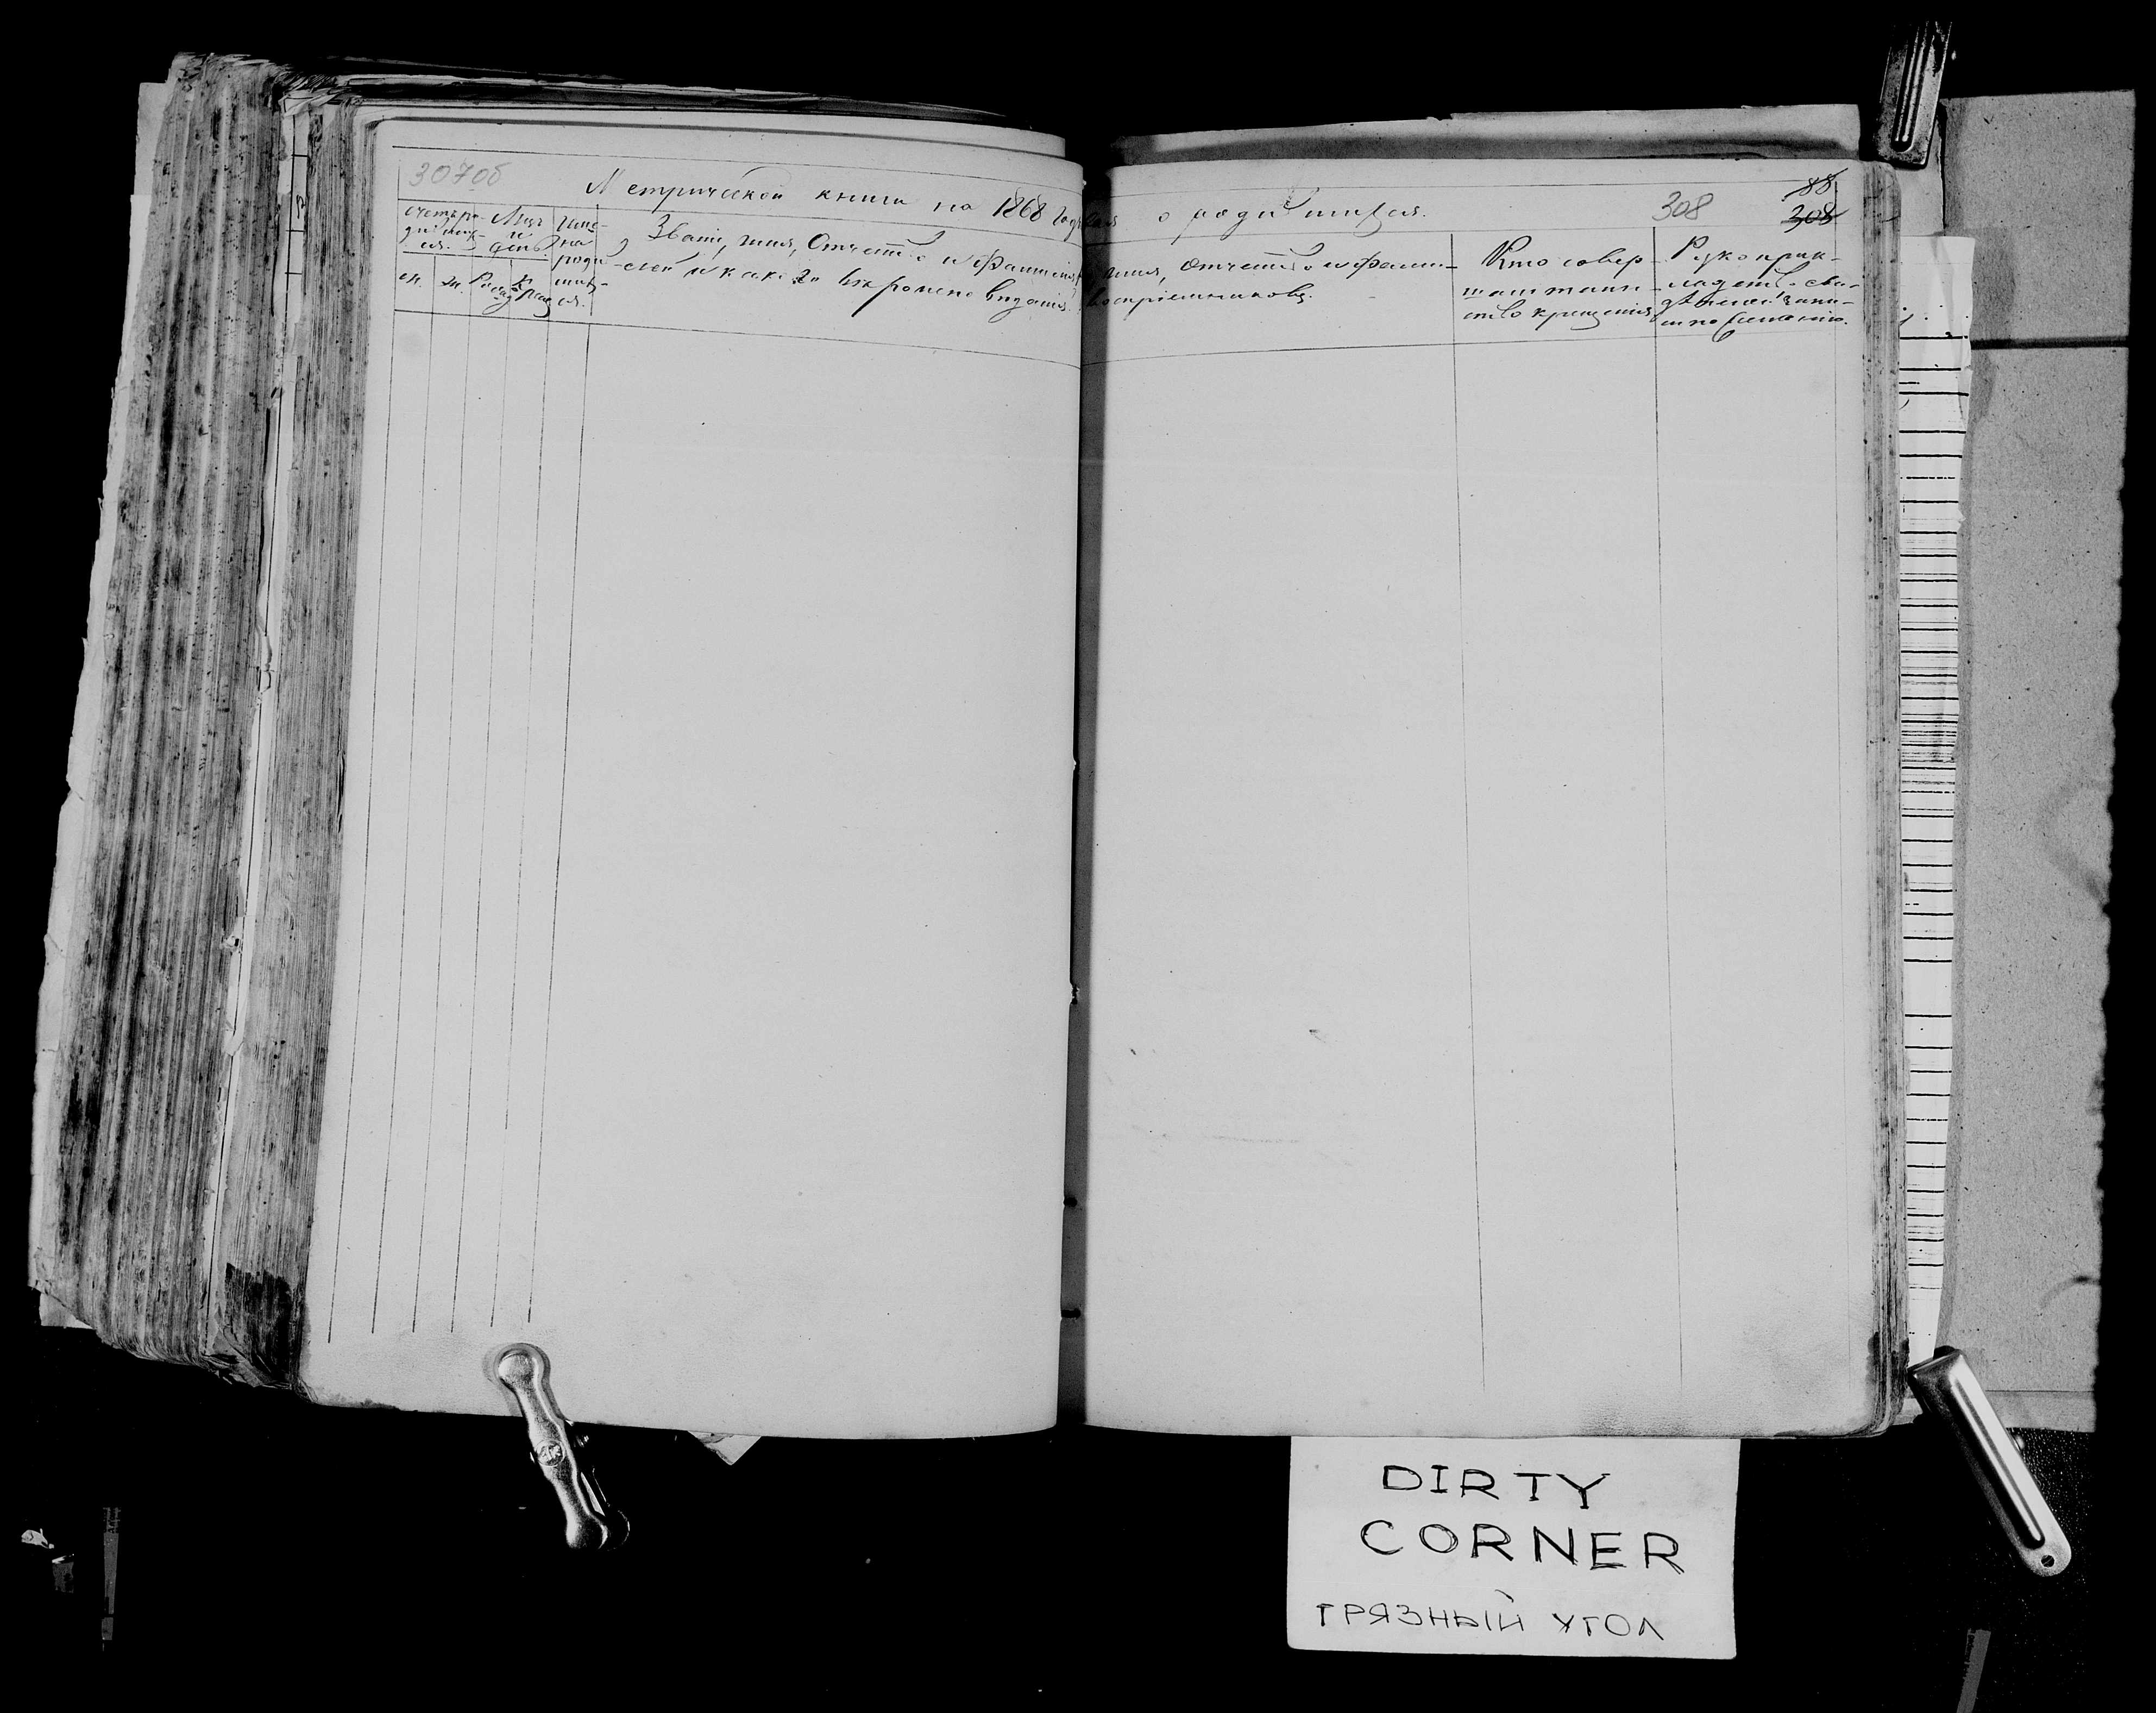 307об
Метрической книги на 1868 годъ
о родившихся.
308
88
308
Счетъ ро-
дивших-
ся.
м.
ж.
Мѣсяцъ
и
день
Имена
роди
вших-
ся.
Званіе, имя, Отчество и Фамилія
и какого вѣроисповѣданія.
имя, отчество и фами-
воспріемниковъ.
Кто совер-
шалъ таин-
ство крещенія
Рукоприк-
ладство сви-
дѣтелей записи
по желанію.
DIRTY
CORNER
ГРЯЗНЫЙ УГОЛ